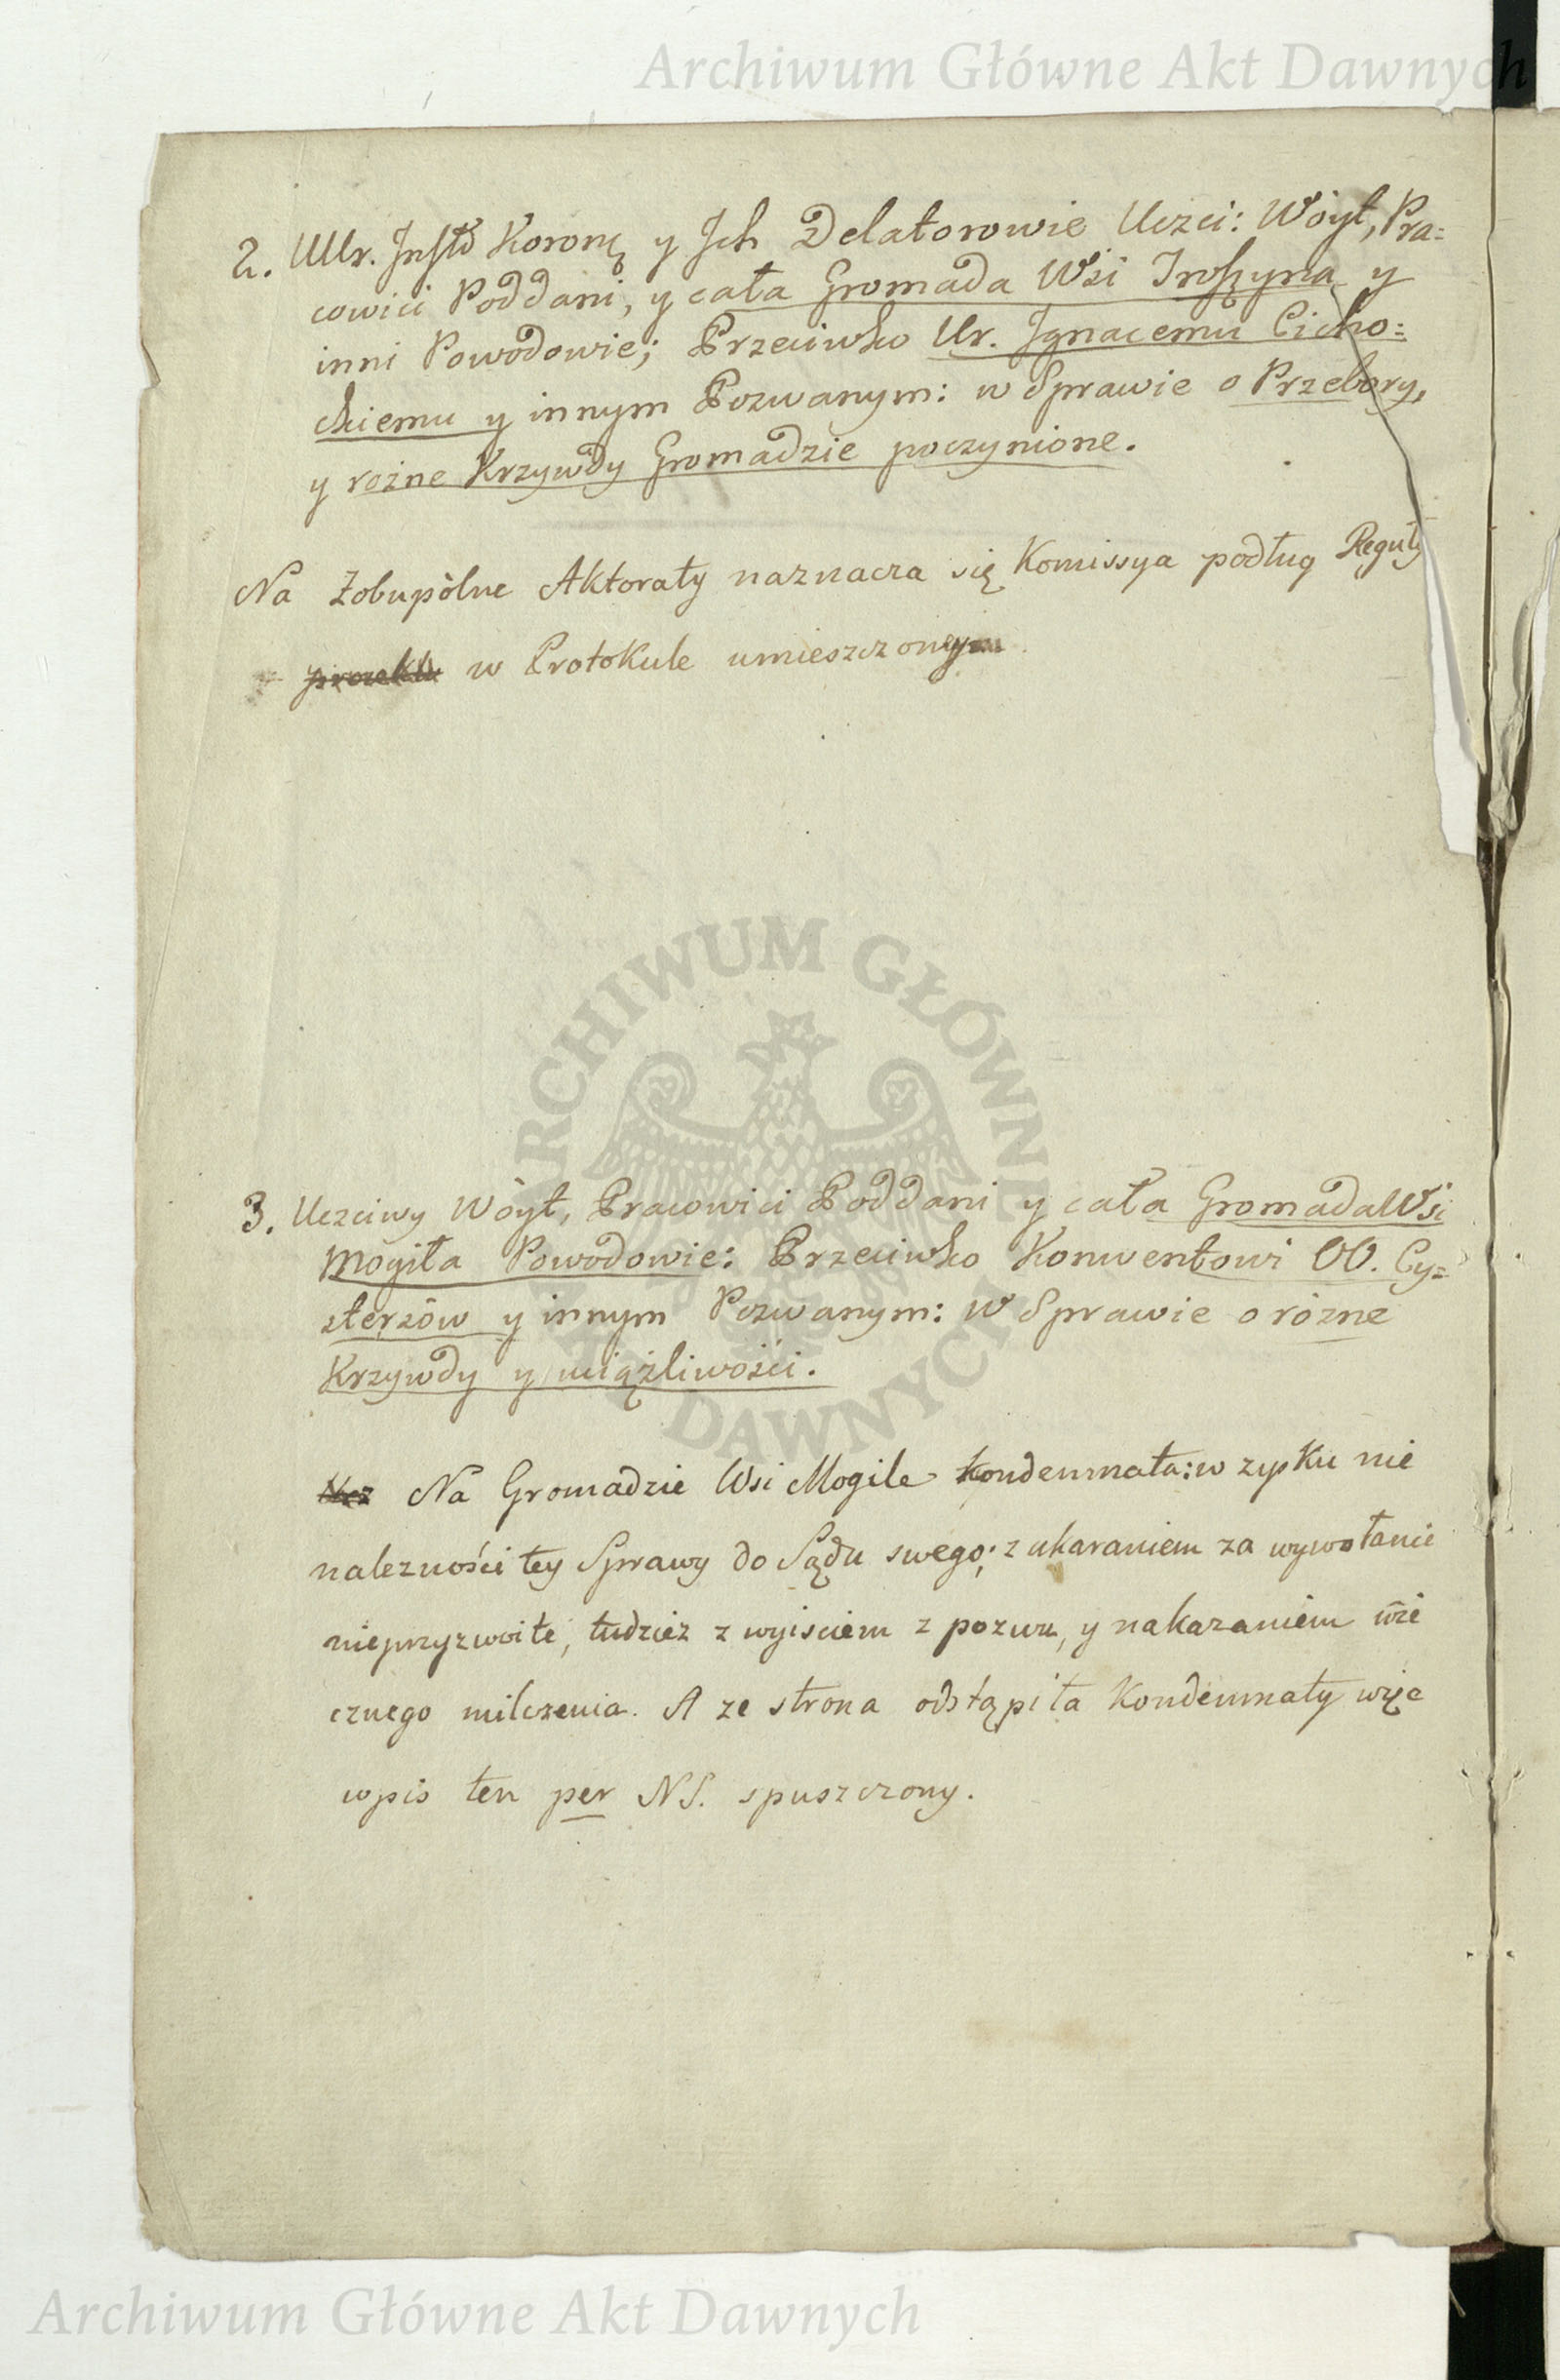 Archiwum Główne Akt Dawnych
2. UUr. Inst̃ Koronę y Ich Delatorowie Uczci: Wóyt, Pra=
cowici Poddani, y cała Gromada Wsi Troszyna y
inni Powodowie; Przeciwko Ur. Ignacemu Cicho=
ckiemu y innym Pozwanym: w Sprawie o Przebory,
y rożne Krzywdy Gromadzie poczynione.
Na Zobupólne Aktoraty naznacza się Komissya podług Reguły
w Protokule umieszczoney
ARCHIWUM GŁÓWNE AKT DAWNYCH
3. Uczciwy Wóyt, Pracowici Poddani y cała Gromada Wsi
Mogiła Powodowie: Przeciwko Konwentowi OO. Cy=
stersów y innym Pozwanym: w Sprawie o rózne
Krzywdy y uciążliwości.
Na Gromadzie Wsi Mogile kondemnata: w zysku nie
należności tey Sprawy do Sądu swego; z ukaraniem za wywołanie
nieprzyzwoite, tudzież z wyisciem z pozwu, y nakazaniem wie
cznego milczenia. A ze strona odstąpiła Kondemnaty więc
wpis ten per NS. spuszczony.
Archiwum Główne Akt Dawnych